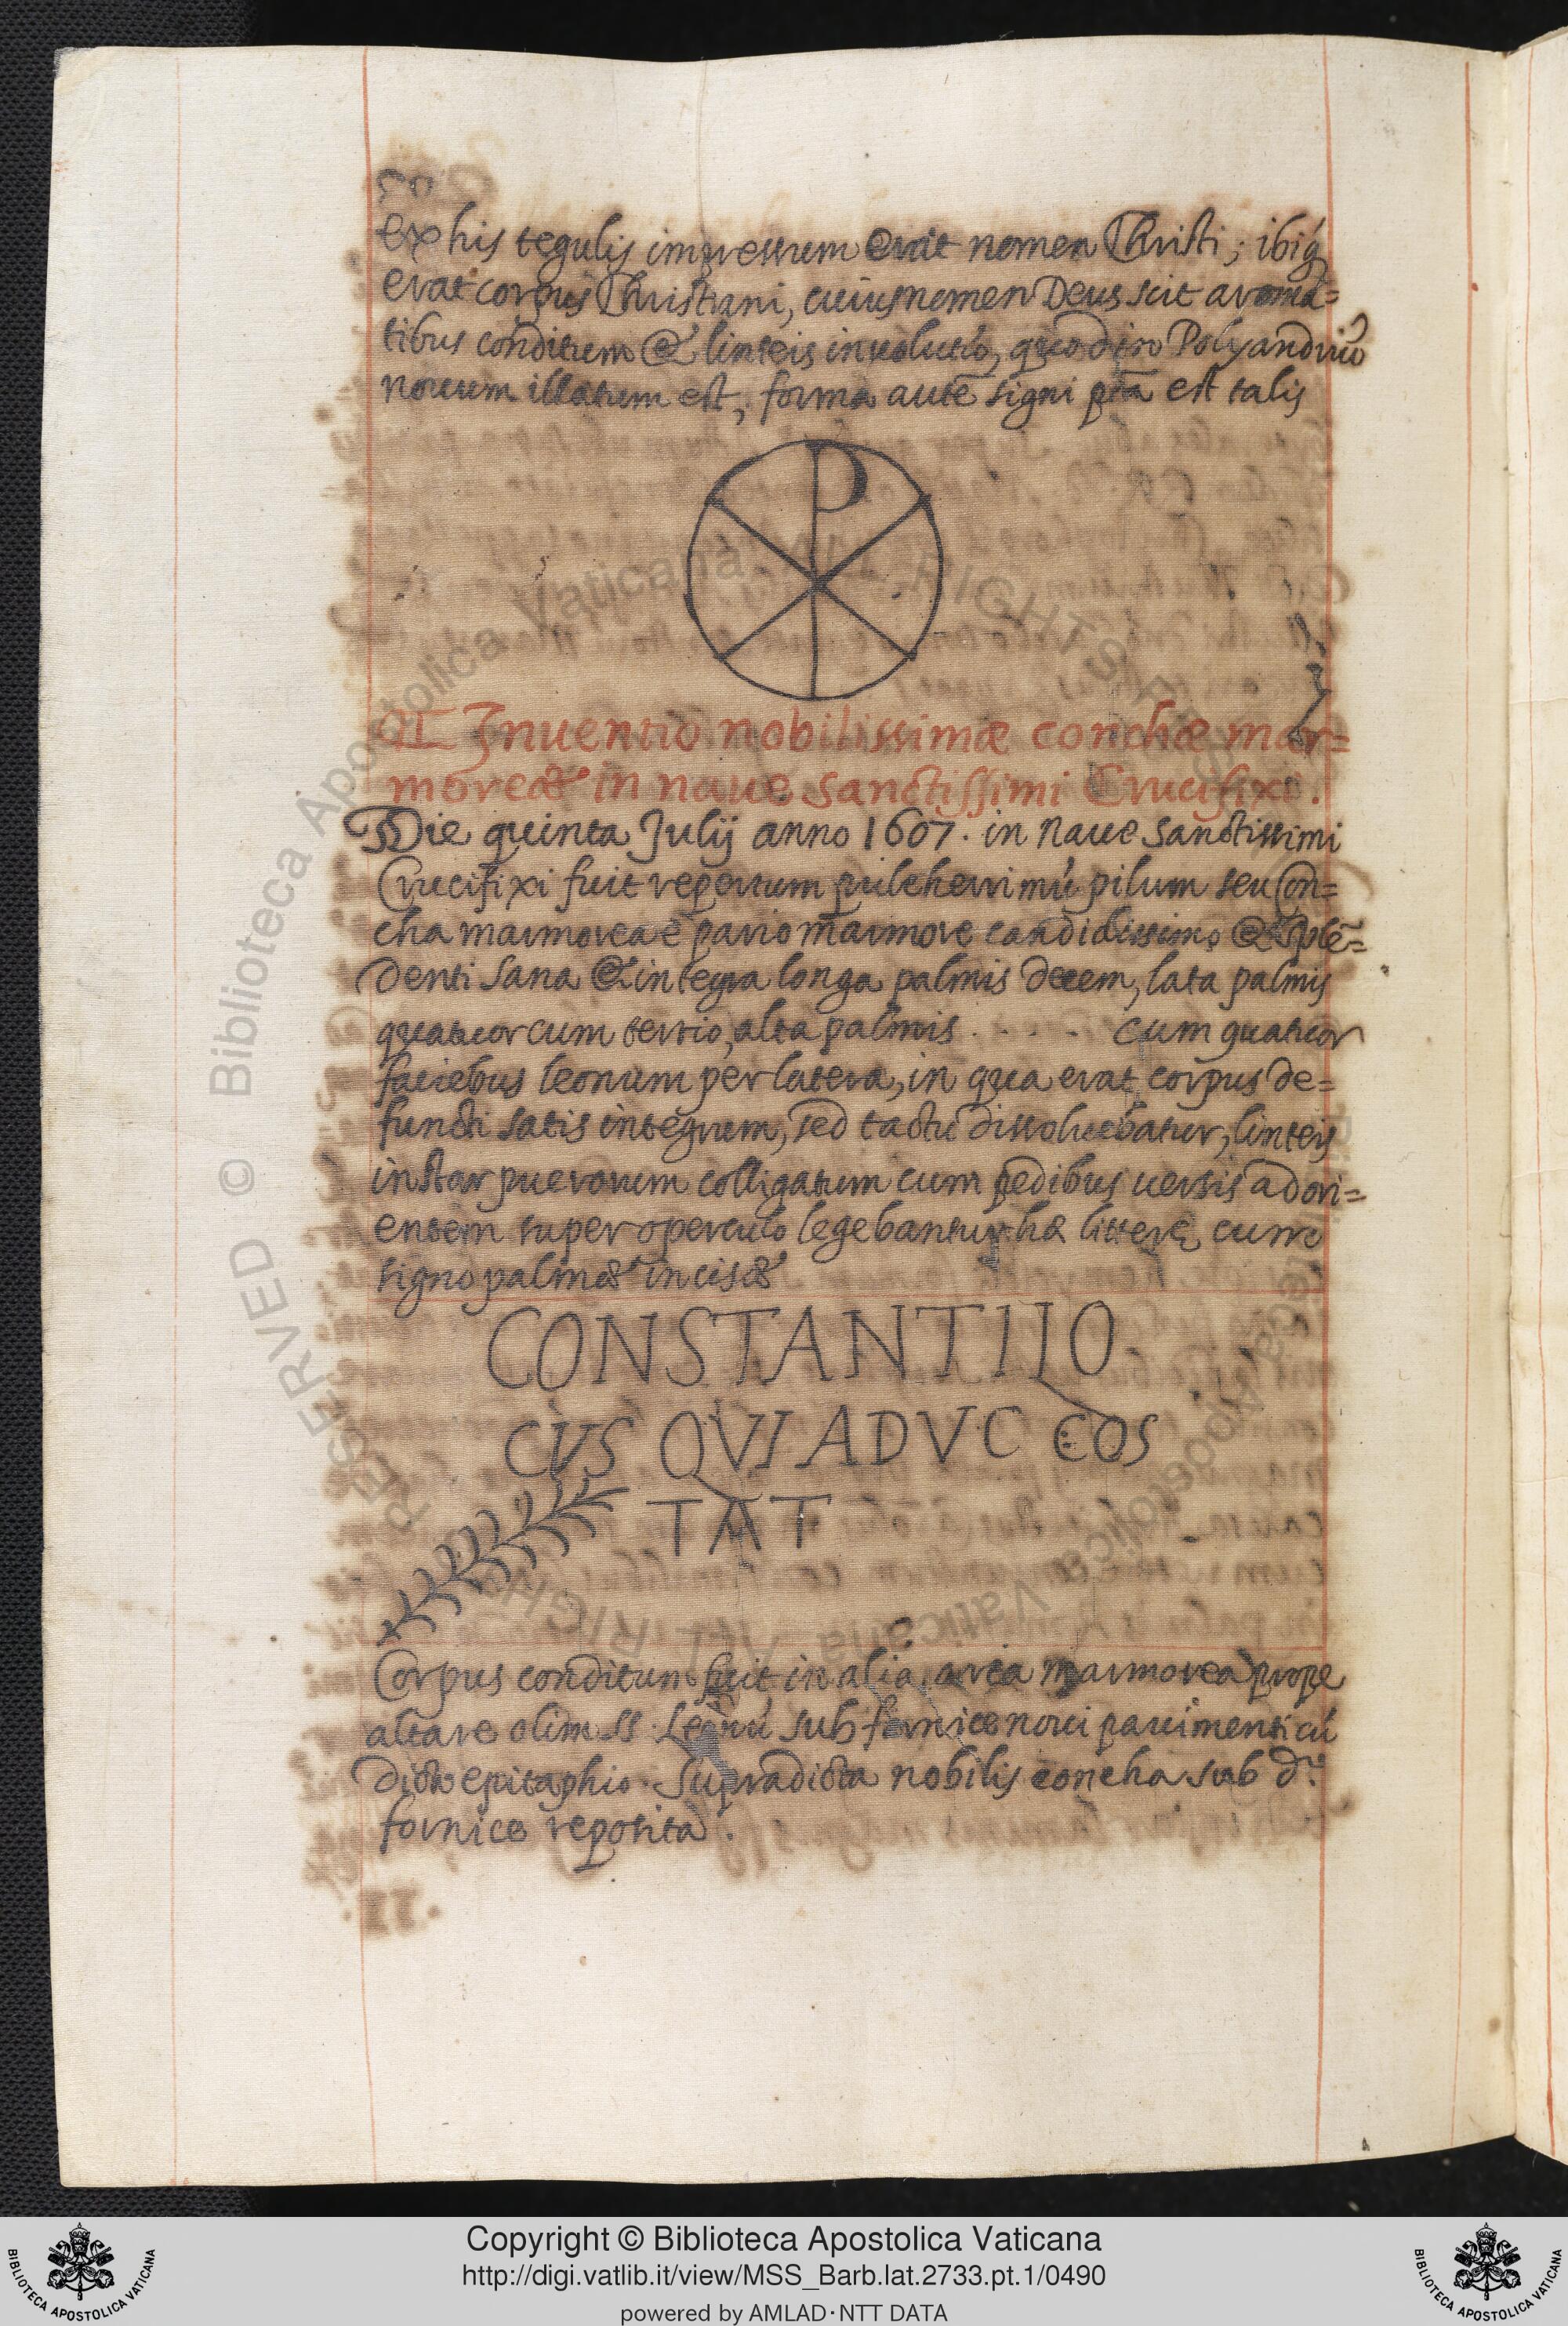 ex his tegulis impressum erat nomen Christi; ibiq3
erat corpus Christiani, cuius nomen Deus scit aroma=
tibus conditum & linteis inuolutú, quod in Polyandriú
nouum illatum est, forma autē signi pta est talis
P
Inuentio nobilissimæ conchæ mar=
moreæ in naue sanctissimi Crucifixi.
Die quinta Julij anno 1607. in naue sanctissimi
Crucifixi fuit repertum pulcherrimú pilum seu Con=
cha marmorea è pario marmore candidissimo & splē=
denti sana & integra longa palmis decem, lata palmis
quatuor cum tertio, alta palmis . . . . cum quatuor
faciebus leonum per latera, in qua erat corpus de=
functi satis integrum, sed tactu dissoluebatur, linteis
instar puerorum colligatum cum pedibus uersis ad ori=
entem super operculo legebantur hæ litterę cum
signo palmæ incisæ
CONSTANTILO
CVS QVI ADVC COS
TAT
Corpus conditum fuit in alia arca marmorea prope
altare olim ss. Leonú sub fornice noui pauimenti cú
dicto epitaphio. Supradicta nobilis concha sub d.º
fornice reposita.
Copyright © Biblioteca Apostolica Vaticana
http://digi.vatlib.it/view/MSS_Barb.lat.2733.pt.1/0490
powered by AMLAD·NTT DATA
BIBLIOTECA APOSTOLICA VATICANA
BIBLIOTECA APOSTOLICA VATICANA